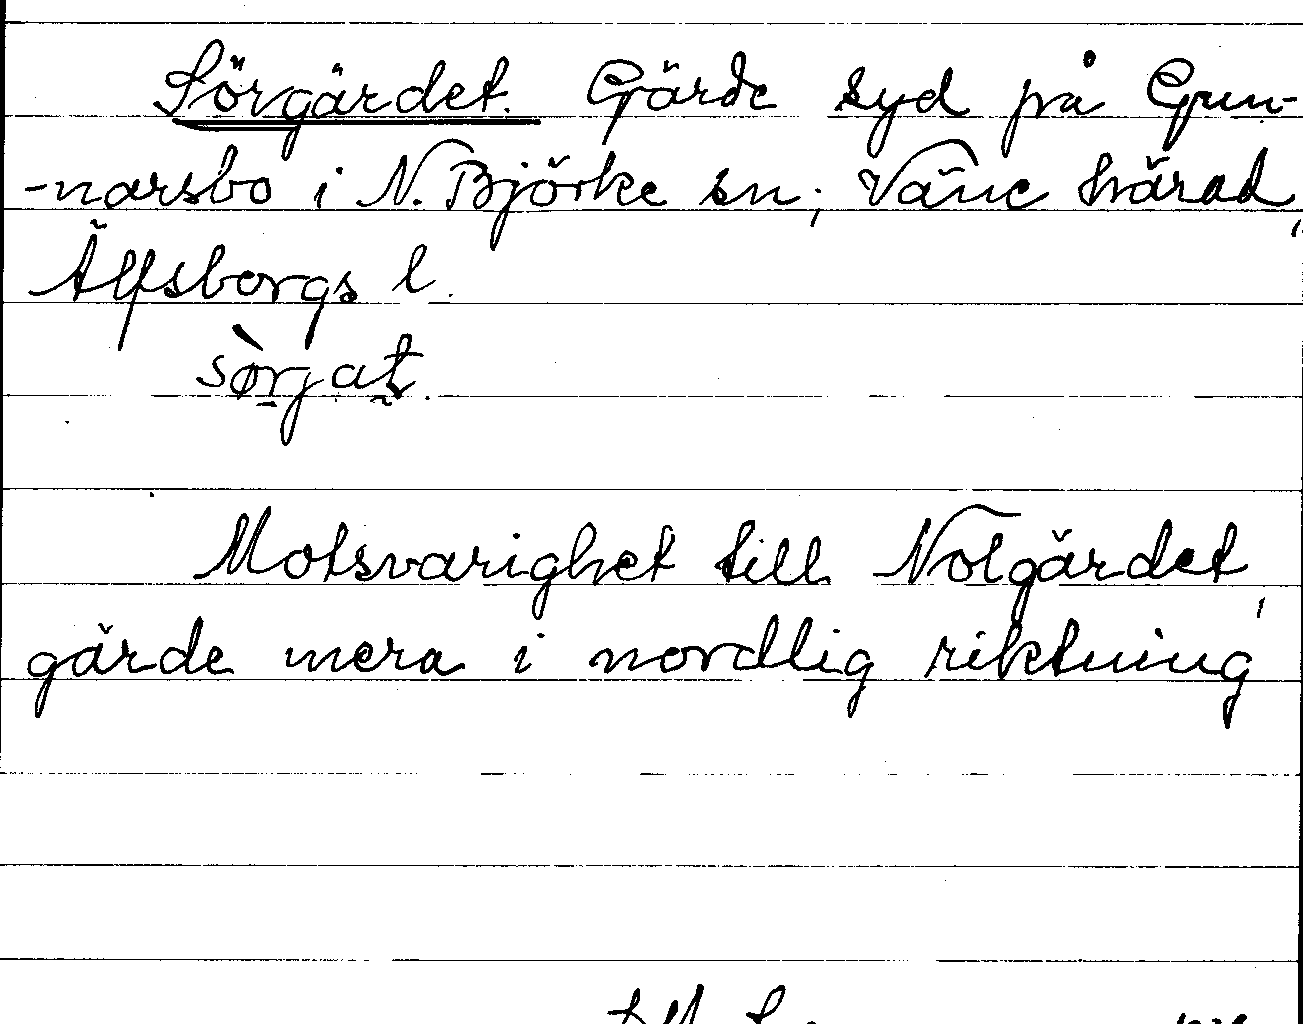 Sörgärdet. Gärde syd på Gun-
-narsbo i N. Björke sn; Väne härad,
Älfsborgs l.
Motsvarighet till Nolgärdet,
gärde mera i nordlig riktning